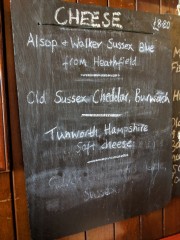 CHEESE £8.80
Alsop + Walker Sussex Blue
from Heathfield
Old Sussex Cheddar, Burwash
Tunworth, Hampshire
Soft cheese
Sussex